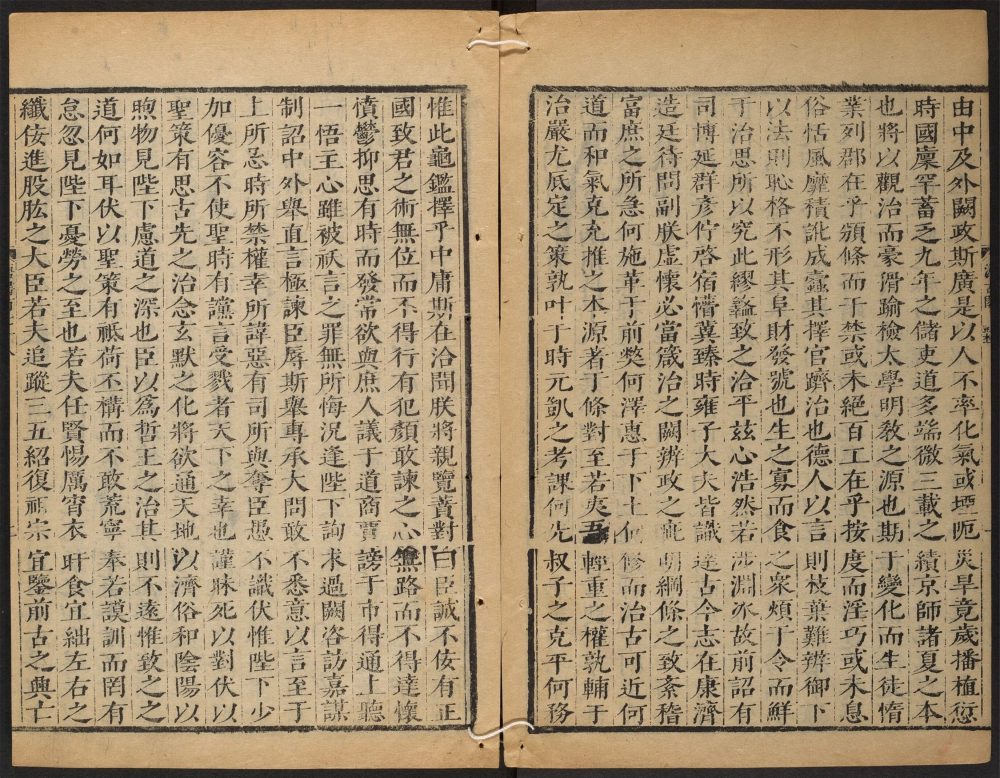 由中及外闕政斯廣是以人不率化氣或堙阨災旱竟歲播植愆
時國廩罕蓄乏九年之儲吏道多端微三載之績京師諸夏之本
也將以觀治而豪猾踰檢太學明教之源也期于變化而生徒惰
業列郡在乎頒條而干禁或未絕百工在乎按度而淫巧或未息
俗恬風靡積訛成蠹其擇官躋治也德人以言則枝葉難辨御下
以法則恥格不形其阜財發號也生之寡而食之衆煩于令而鮮
于治思所以究此繆盭致之治平兹心浩然若涉淵冰故前詔有
司博延群彥佇啓宿懵冀臻時雍子大夫皆識達古今志在康濟
造廷待問副朕虛懷必當箴治之闕辨政之疵明綱條之致紊稽
富庶之所急何施革于前弊何澤惠于下土何修而治古可近何
道而和氣克充推之本源著于條對至若夷吾輕重之權孰輔于
治嚴尤底定之策孰叶于時元凱之考課何先叔子之克平何務
惟此龜鑑擇乎中庸斯在洽聞朕將親覽蕡對曰臣誠不佞有正
國致君之術無位而不得行有犯顏敢諫之心無路而不得達懷
憤鬱抑思有時而發常欲與庶人議于道商賈謗于市得通上聽
一悟主心雖被祅言之罪無所悔況逢陛下詢求過闕咨訪嘉謀
制詔中外舉直言極諫臣辱斯舉專承大問敢不悉意以言至于
上所忌時所禁權幸所諱惡有司所與奪臣愚不識伏惟陛下少
加優容不使聖時有讜言受戮者天下之幸也謹昧死以對伏以
聖策有思古先之治念玄默之化將欲通天地以濟俗和陰陽以
煦物見陛下慮道之深也臣以爲哲王之治其則不遠惟致之之
道何如耳伏以聖策有祗荷丕構而不敢荒寧奉若謨訓而罔有
怠忽見陛下憂勞之至也若夫任賢惕厲宵衣旰食宜絀左右之
纖佞進股肱之大臣若夫追蹤三五紹復祖宗宜鑒前古之興亡